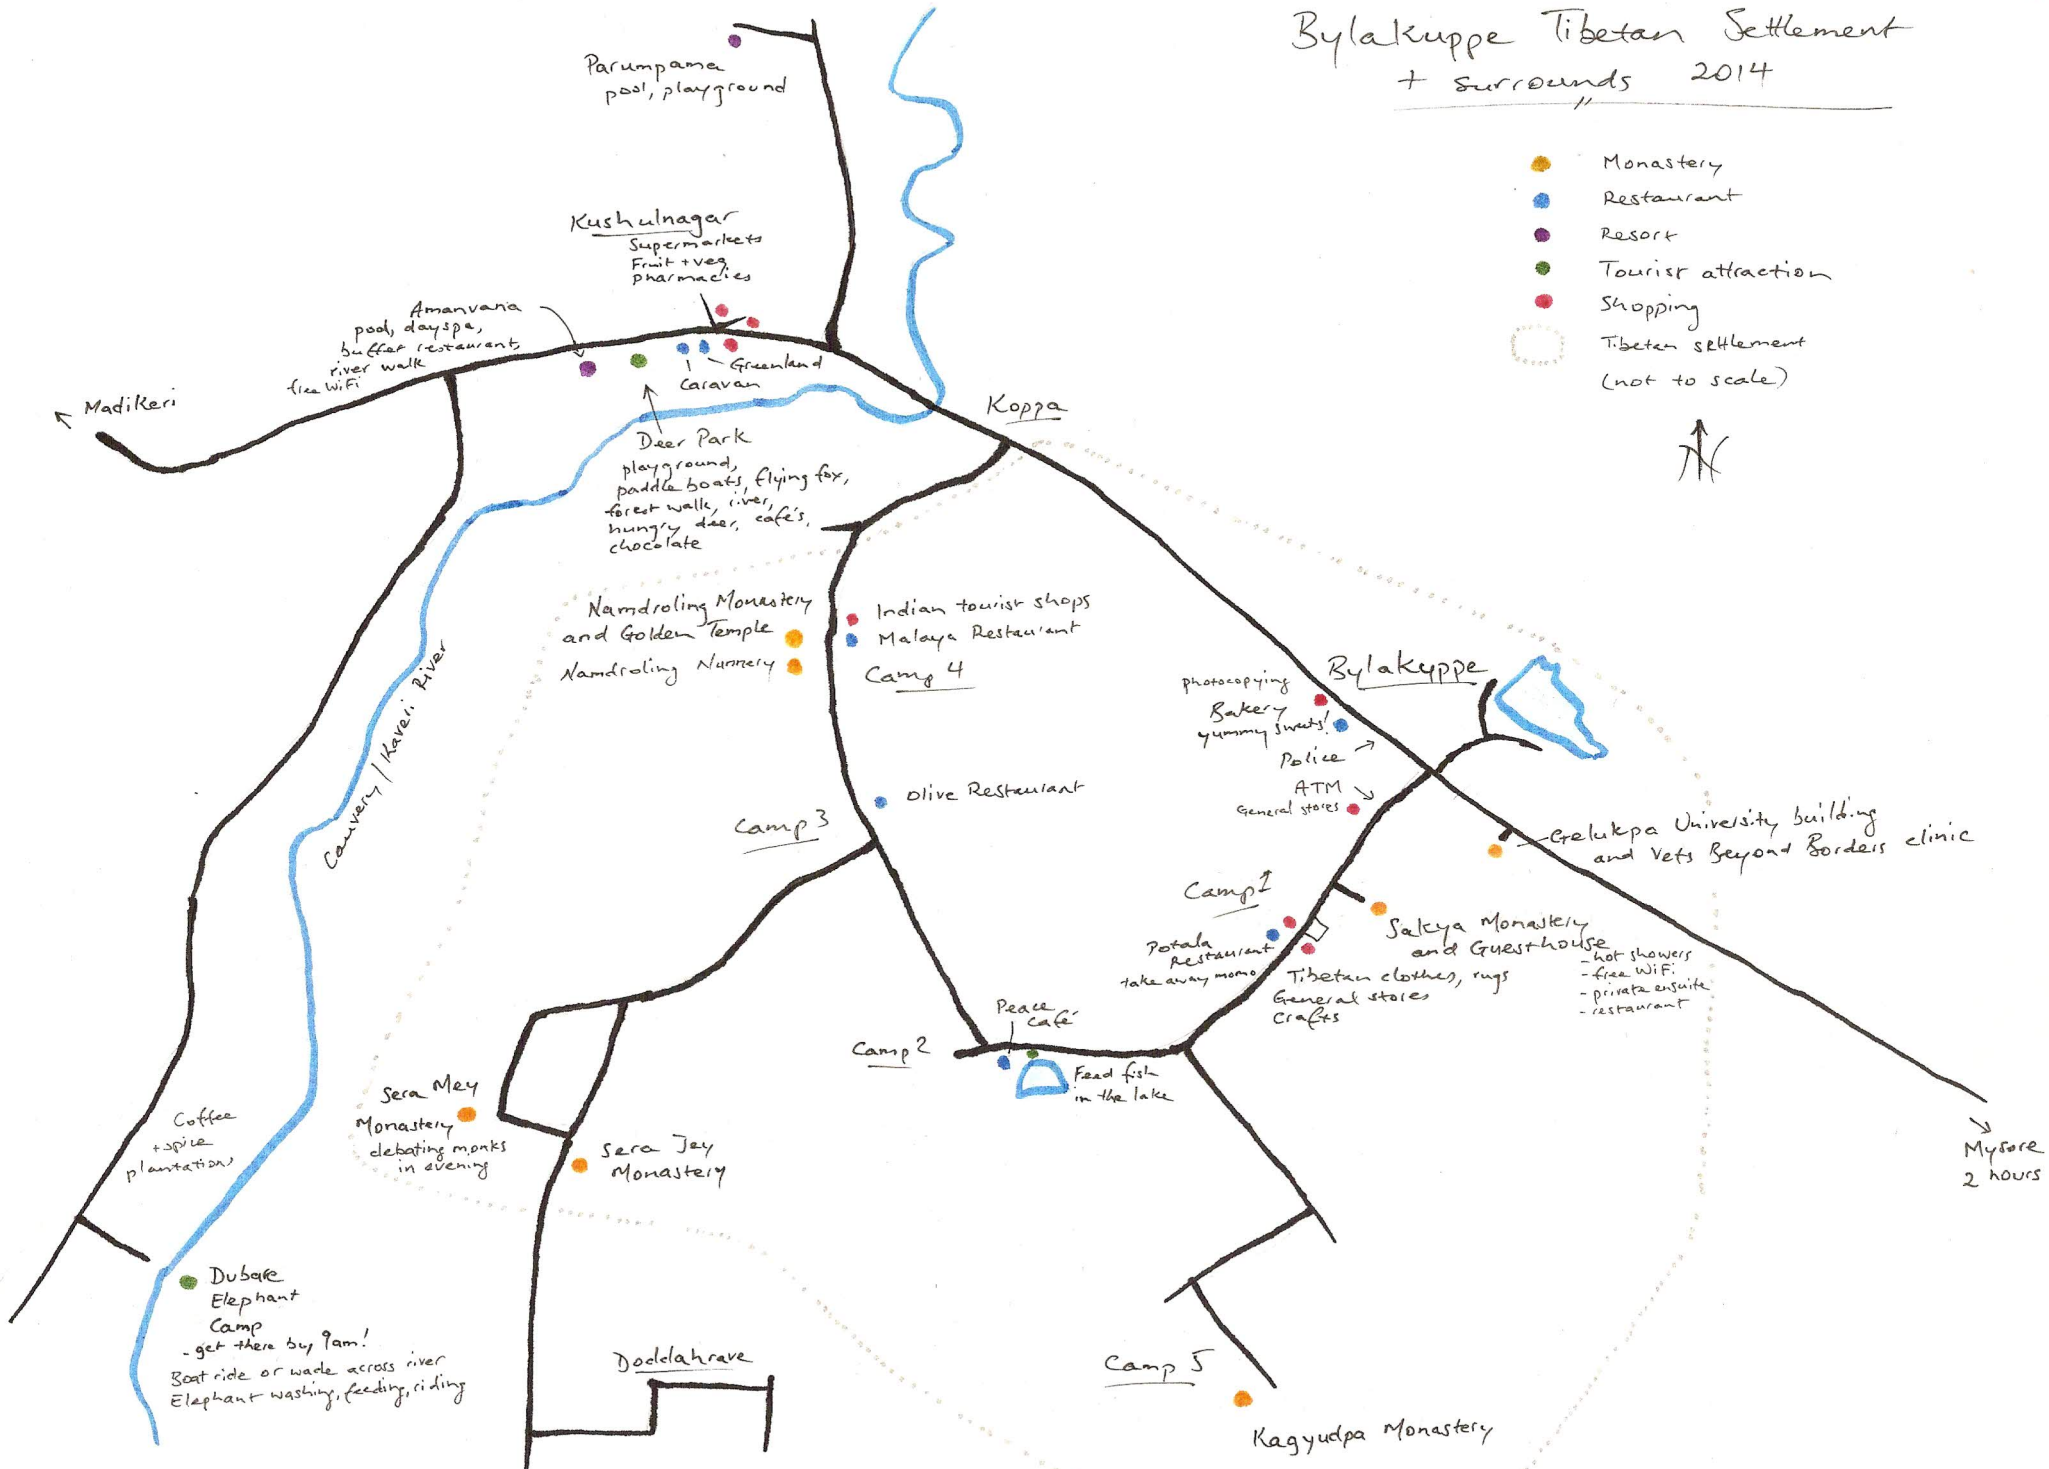 Bylakuppe Tibetan Settlement
+ surrounds 2014
Monastery
Restaurant
Resort
Tourist attraction
Shopping
Tibetan settlement
(not to scale)
N
Parumpama
pool, playground
Kushulnagar
Supermarkets
Fruit + veg
pharmacies
Amanvana
pool, dayspa,
buffet restaurant,
river walk
free WiFi
Greenland
Caravan
Madikeri
Koppa
Deer Park
playground,
paddle boats, flying fox,
forest walk, river,
hungry deer, café's,
chocolate
Namdroling Monastery
and Golden Temple
Namdroling Nunnery
Indian tourist shops
Malaya Restaurant
Camp 4
Bylakuppe
photocopying
Bakery
yummy sweets!
Police
ATM
General stores
Cauvery / Kaveri River
Olive Restaurant
Camp 3
Gelukpa University building
and Vets Beyond Borders clinic
Camp 1
Sakya Monastery
and Guesthouse
- hot showers
- free WiFi
- private ensuite
- restaurant
Potala
Restaurant
take away momo
Tibetan clothes, rugs
General stores
Crafts
Peace
café
Camp 2
Feed fish
in the lake
Sera Mey
Monastery
debating monks
in evening
Sera Jey
Monastery
Coffee
+ spice
plantations
Mysore
2 hours
Dubare
Elephant
Camp
- get there by 9am!
Boat ride or wade across river
Elephant washing, feeding, riding
Doddahrave
Camp 5
Kagyudpa Monastery